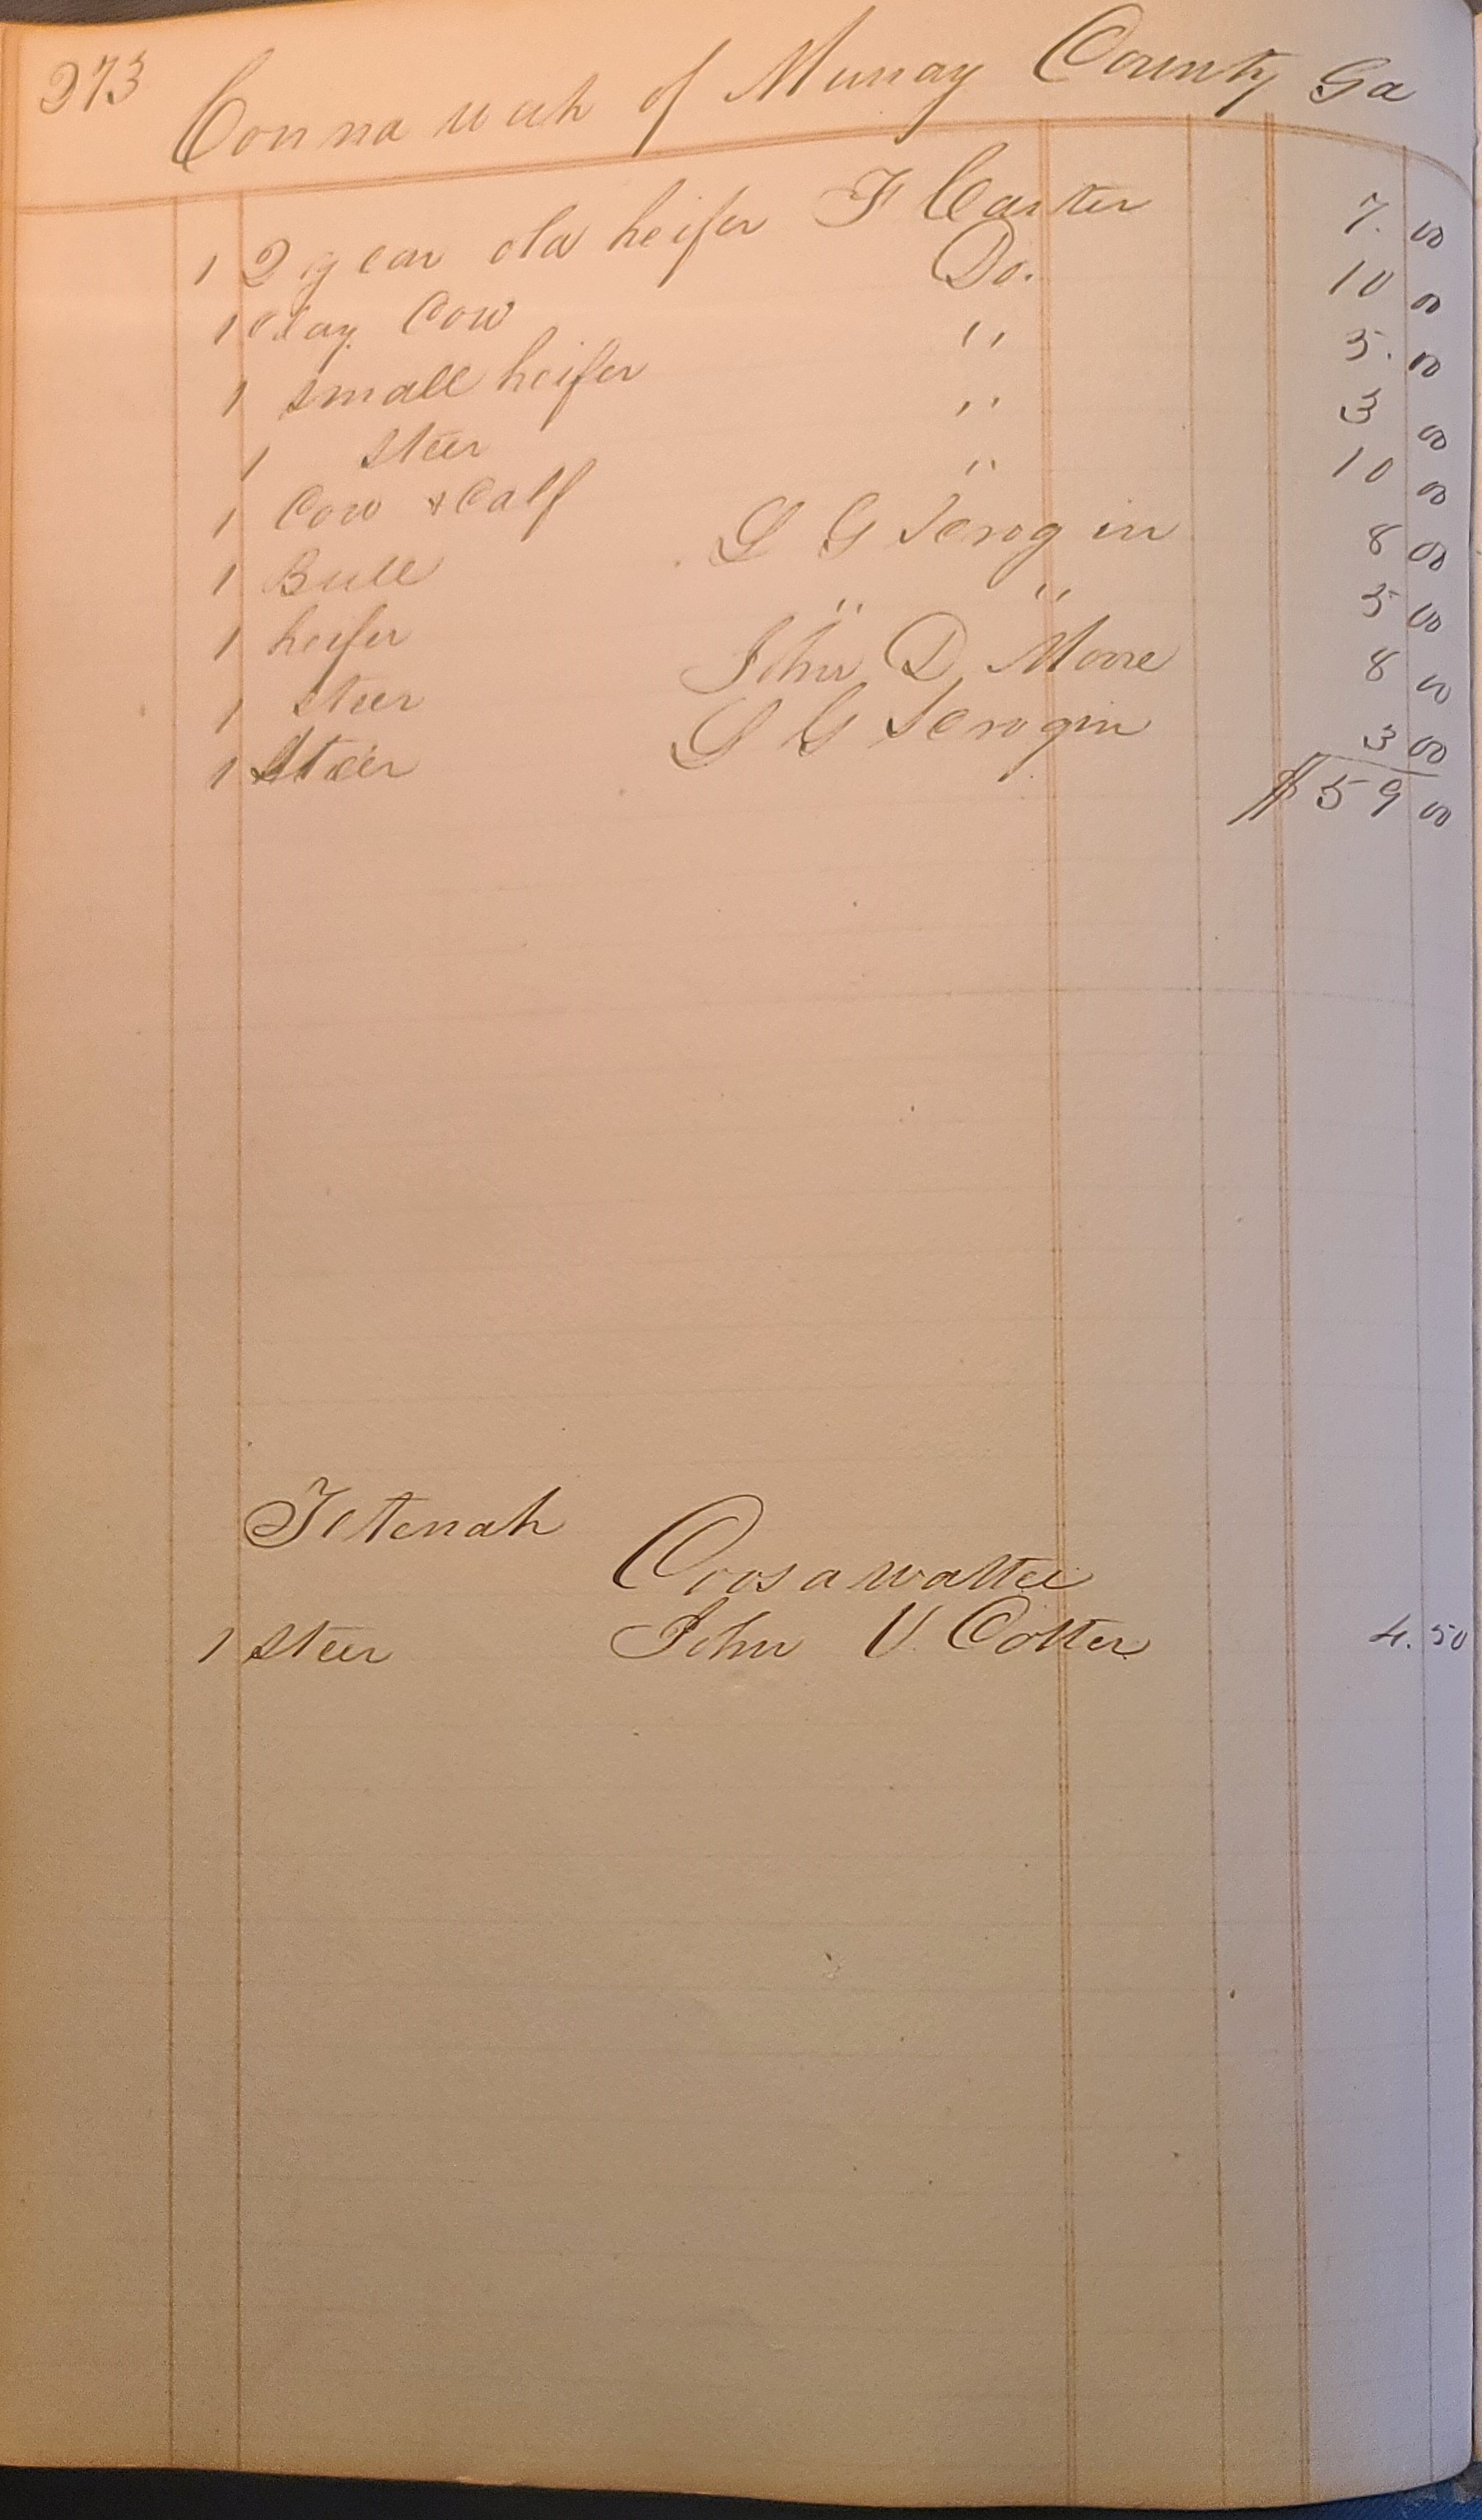 273
Connawah of Murray County Ga
1 2 year old heifer F Carter 7.00
1 Cow Do. 10 00
1 small heifer " 5.00
1 steer " 3 00
1 Cow & Calf " 10 00
1 Bull L G Scrogin 8 00
1 heifer " " 5 00
1 steer John D Moore 8 00
1 Steer L G Scrogin 3 00
$59 00
Coosawattee
1 steer John V. Cotter 4.50